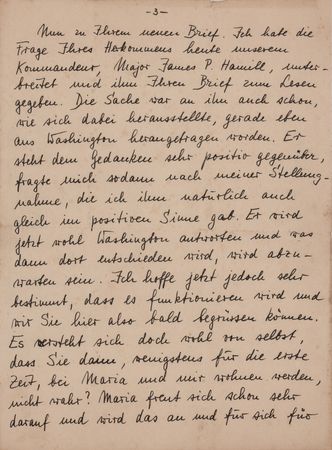 -3-
Nun zu Ihrem neuen Brief. Ich habe die
Frage Ihres Herkommens heute unserem
Kommandeur, Major James P. Hamill, unter-
breitet und ihm Ihren Brief zum Lesen
gegeben. Die Sache war an ihn auch schon,
wie sich dabei herausstellte, gerade eben
aus Washington herangetragen worden. Er
steht dem Gedanken sehr positiv gegenüber,
fragte mich sodann nach meiner Stellung-
nahme, die ich ihm natürlich auch
gleich im positiven Sinne gab. Er wird
jetzt wohl Washington antworten und was
dann dort entschieden wird, wird abzu-
warten sein. Ich hoffe jetzt jedoch sehr
bestimmt, dass es funktionieren wird und
wir Sie hier also bald begrüssen können.
Es versteht sich doch wohl von selbst,
dass Sie dann, wenigstens für die erste
Zeit, bei Maria und mir wohnen werden,
nicht wahr? Maria freut sich schon sehr
darauf und wird das an und für sich für